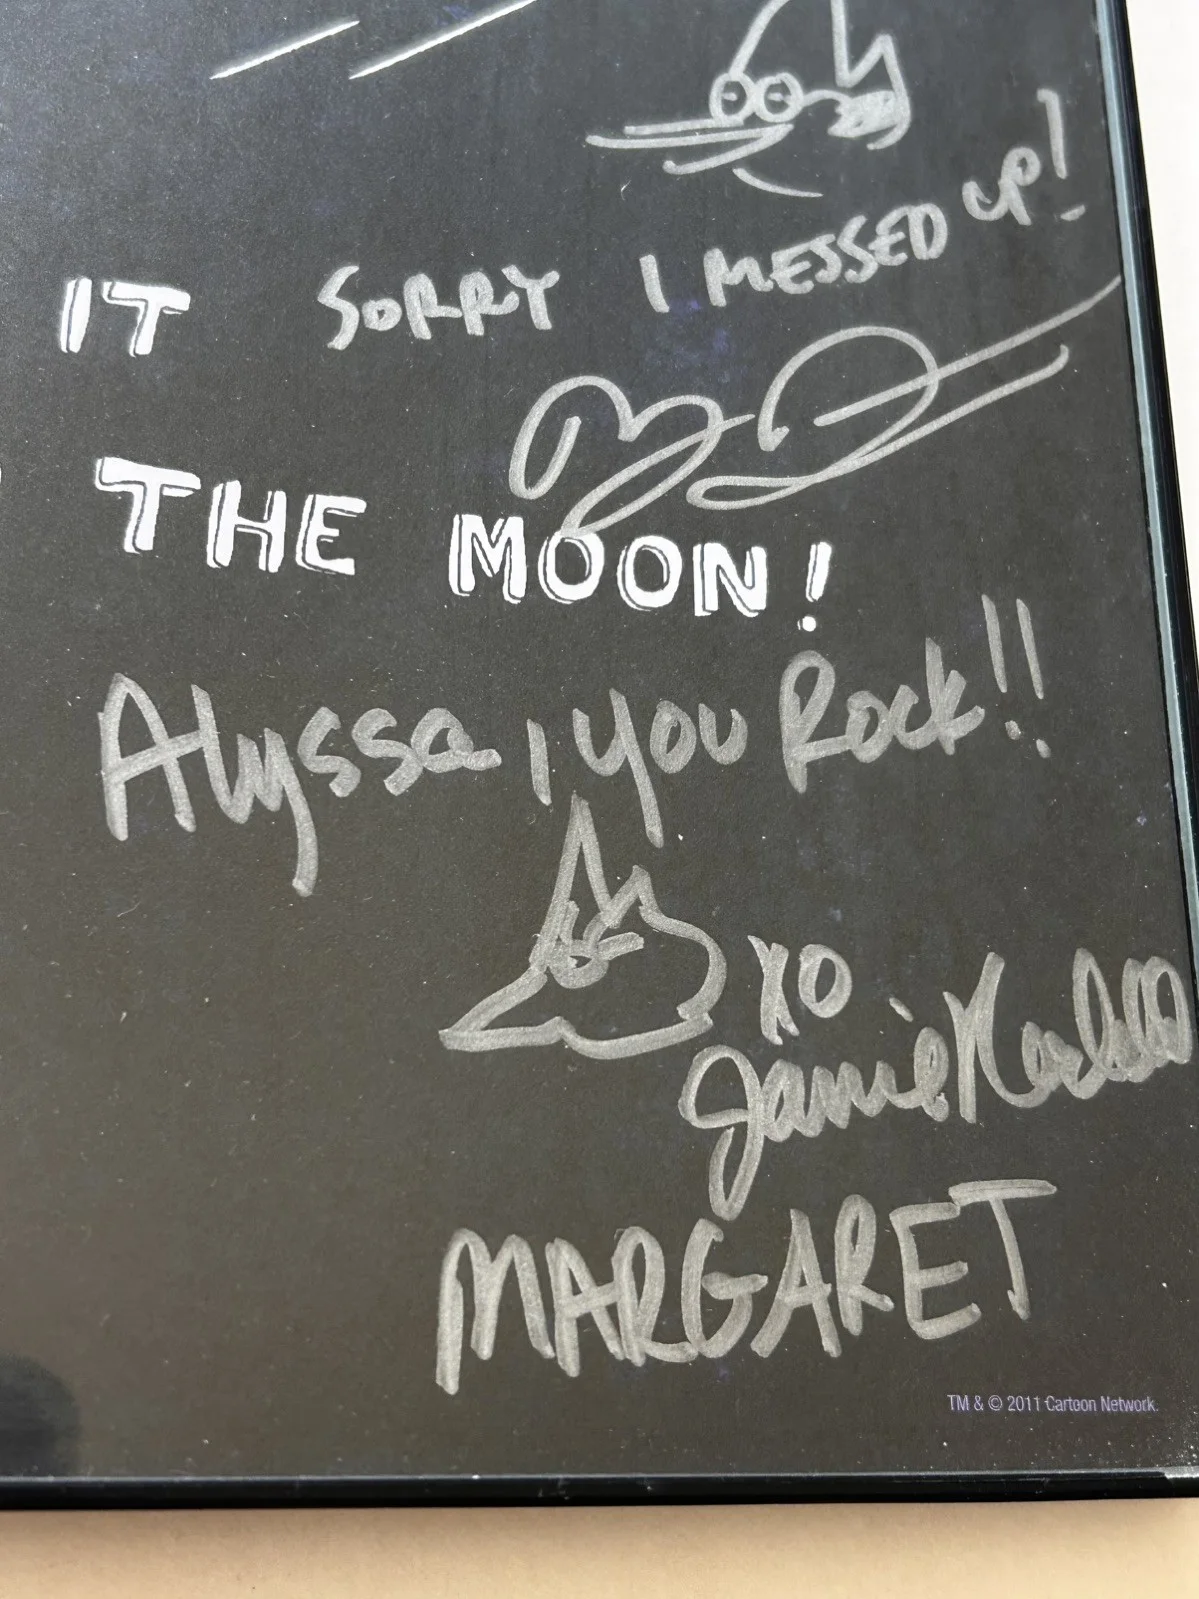 SORRY I MESSED UP!
IT
THE MOON!
Alyssa, you Rock!!
XO
Jamie
MARGARET
TM & © 2011 Cartoon Network.